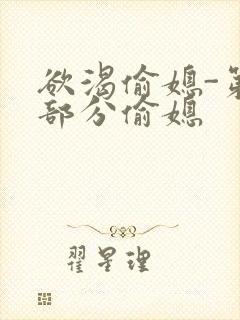 欲渴偷媳-第
部分偷媳
翟星理